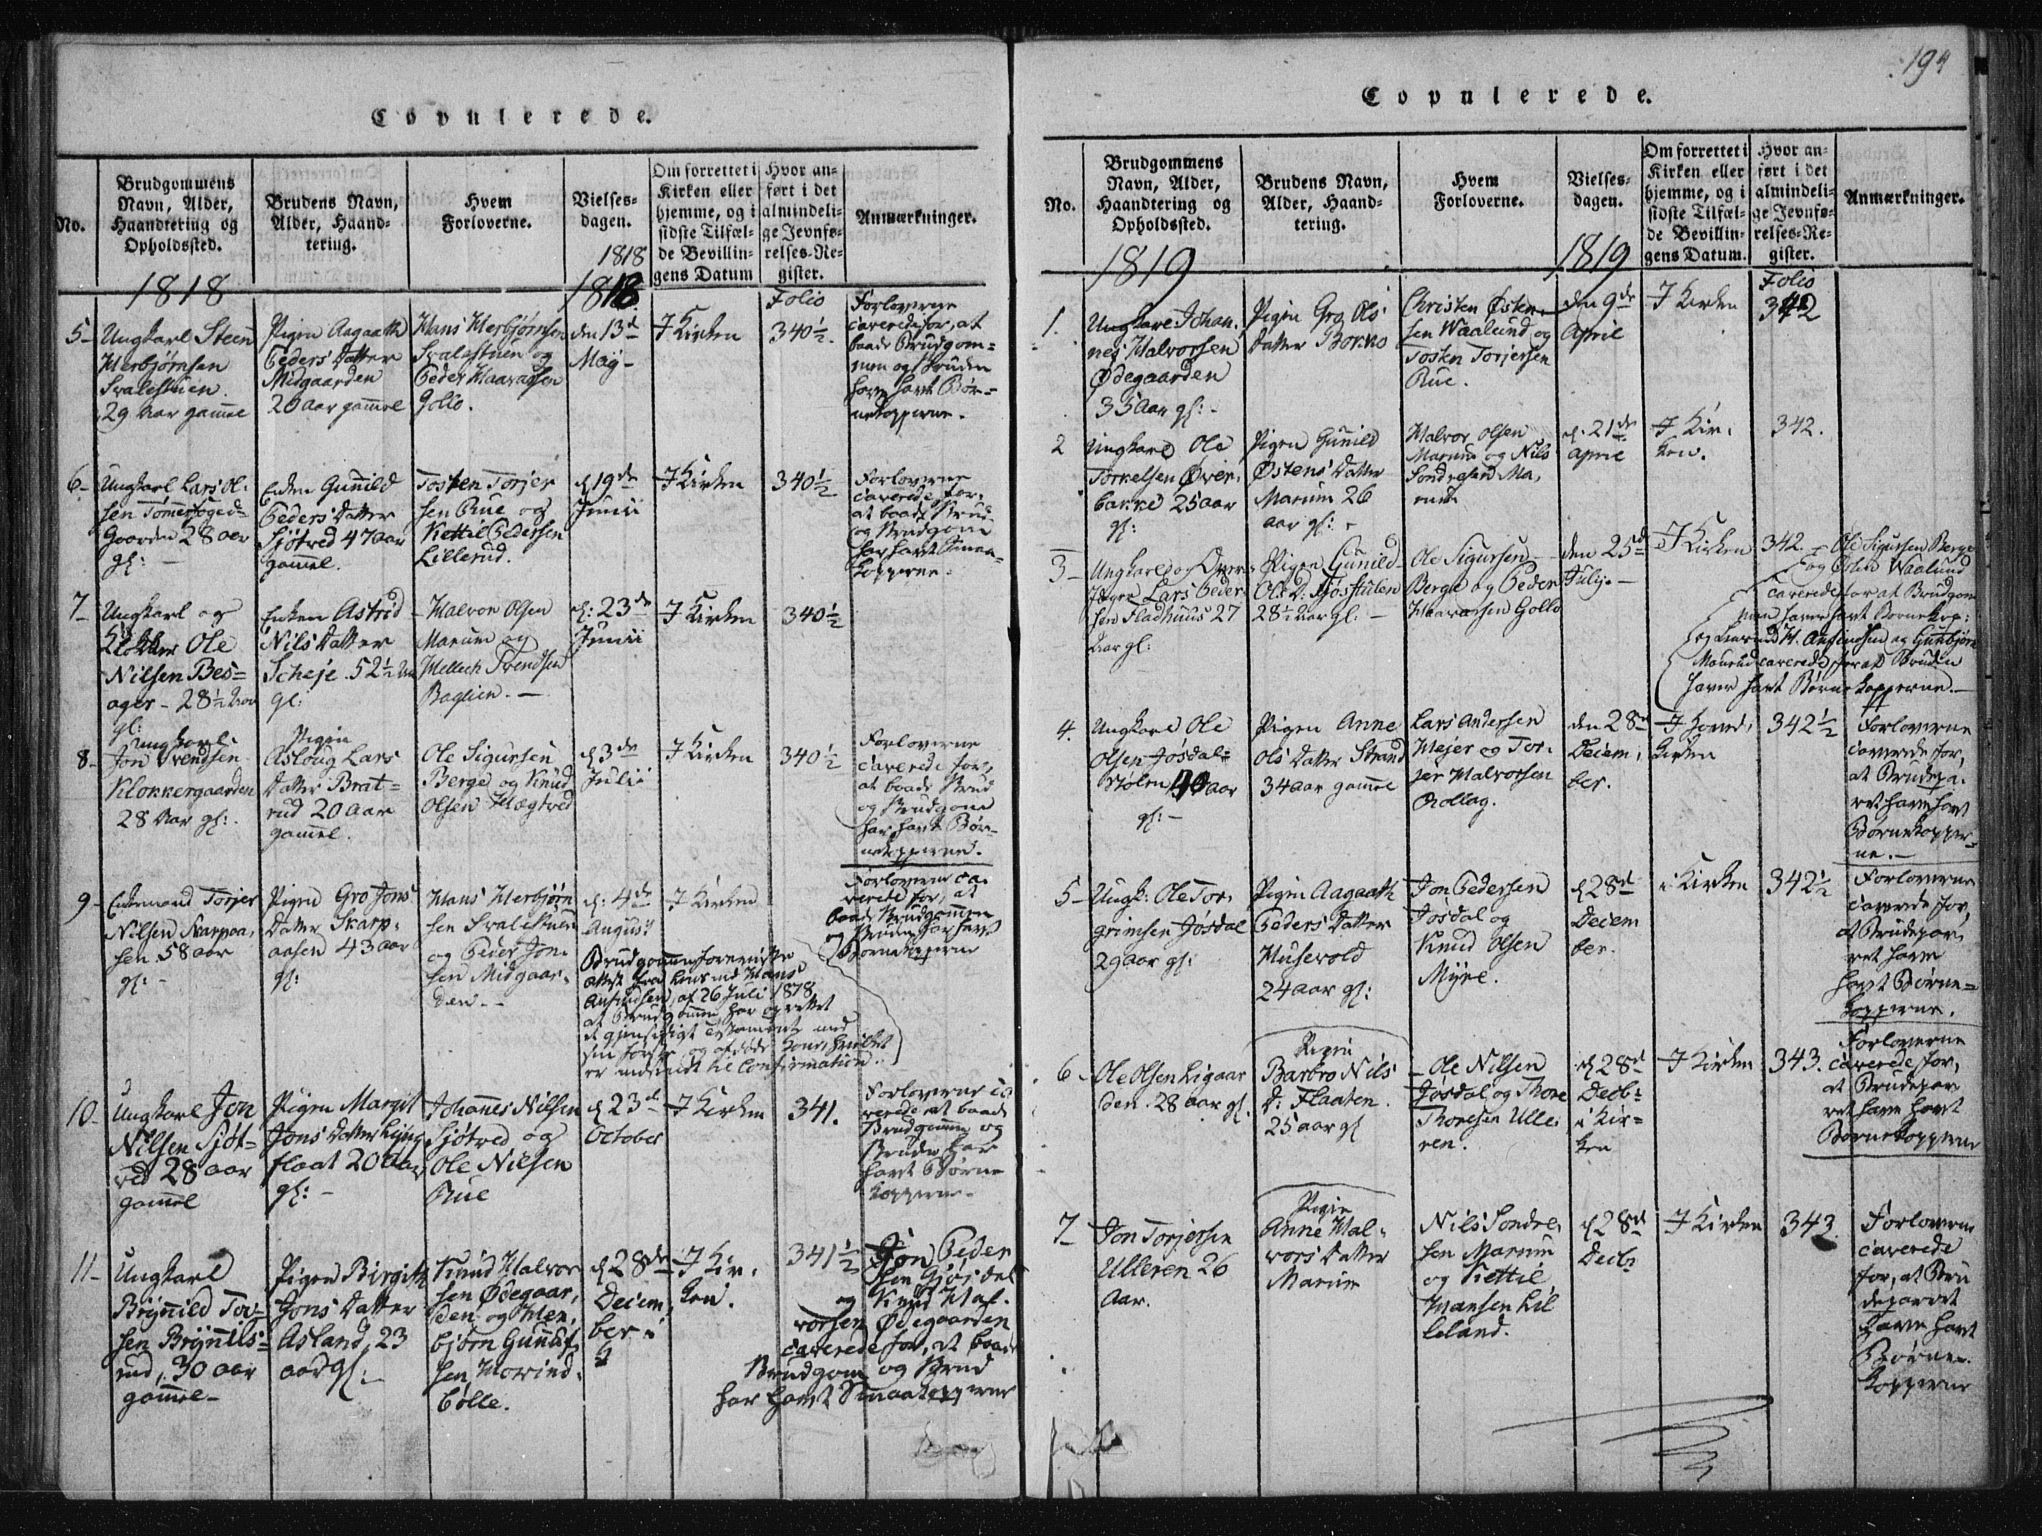 194
Copulerede.
No.
Brudgommens
Navn, Alder,
Haandtering og
Opholdssted.
Brudens Navn,
Alder, Haand-
tering.
Hvem
Forloverne.
Vielses-
dagen.
Om forrettet i
Kirken eller
hjemme, og i
sidste Tilfæl-
de Bevillin-
gens Datum
Hvor an-
ført i det
almindeli-
ge Jevnfø-
relses-Re-
gister.
Anmærkninger.
1818
1818
1818
Folio
5-
Ungkarl Steen
Herbjørnsen
Svalestuen
29 Aar gamel
Pigen Aagaath
Peders Datter
Midgaarden
20 aar gamel
Hans Herbjørnsen
Svalestuen og
Peder Haavarsen
Gollo.
den 13de
Maj-
I Kirken
340½.
Forloverne
caverede for, at
baade Brudgom=
men og Bruden
have havt Bør-
nekopperne.
6-
Ungkarl Lars Ol-
sen
Gaarden 28 aar
gl: -
Enken Gunild
Peders Datter
Sjøtved 47 aar
gamel.
Tosten Torjer
sen Rue og
Kettil Pedersen
Lillerud.
d 19de
Junii
I Kirken
340½
Forloverne
caverede for,
at baade Brud
og Brudgom
har havt Smaa-
kopperne.
7-
Ungkarl og
Klokker Ole
Nilsen Bes=
ager - 28½ Aar
gl:
Enken Astrid
Nils Datter
Scheje 52½ Aar
gl:
Halvor Olsen
Marum og
Mellech Svendsen
Baglien. -
d: 23de
Junii
I Kirken
340½
8-
Ungkarl
Jon Svendsen
Klokkergaarden
28 Aar gl:.
Pigen
Asloug Lars
Datter Brat=
rud 20 Aar
gamel.
Ole Sigursen
Berge og Knud
Olsen Hægtved
d 3de
Julii
I Kirken
340½
Forloverne
caverede for,
at baade Brud
og Brudgom
har havt Bør-
nekopperne.
9-
Enkemand Torjer
Nilsen Skarpaa-
sen 58 aar
gl: -
Pigen Gro Jons
Datter Skarp-
aasen 43 aar
gl:
Hans Herbjørn
sen Svalestuen
og Peder Jon-
sen Midgaar-
den. -
d: 4de
August
I Kirken
Forloverne ca-
verede for, at
baade Brudgommen
og Bruden har havt
Børnekopperne
Brudgommen foreviiste
Attest fra
af 26 Juli 1818,
at Brudgommen har oprettet
et gjensidigt Testamente med
sin første og afdøde Kone, hvilket
er indsendt til Confirmation.
10-
Ungkarl Jon
Nilsen Sjøt-
ved 28 aar
gamel
Pigen Margit
Jons Datter Lyng
flaat 20 Aar
gl: -
Johannes Nilsen
Sjøtved og
Ole Nilsen
Rue
d 23de
October
I Kirken
341.
Forloverne ca-
verede at baade
Brudgomme og
Bruden har
havt Børne
kopperne.
11-
Ungkarl
Brynild Tor-
sen Brynils=
rud, 30 aar
gamel-
Pigen Birgith
Jons Datter
Asland 23
aar gl:.
Knud Halvor
sen Ødegaar,
den og Hen,
bjørn Gunulf
sen Morind-
bølle.
d 28de
Decem
ber i
I Kir-
ken.
341½
Jon Peder
sen Gjøsdal
og Knud Hal-
vorsen Ødegaarden
caverede for, at baade
Brudgom og Brud
har havt Smaakopperne
Copulerede.
No.
Brudgommens
Navn, Alder,
Haandtering og
Opholdssted.
Brudens Navn,
Alder, Haand-
tering.
Hvem
Forloverne.
Vielses-
dagen.
Om forrettet i
Kirken eller
hjemme, og i
sidste Tilfæl-
de Bevillin-
gens Datum.
Hvor an-
ført i det
almindeli-
ge Jevnfø-
relses-Re-
gister.
Anmærkninger.
1819
1819
Folio
1.
Ungkarl Johan-
nes Halvorsen
Ødegaarden
35 Aar gl: -
Pigen Gro Ols
datter
Christen Østen
sen Waalund og
Tosten Torjersen
Rue.
den 9de
April
I Kirken
342
2
Ungkarl Ole
Torkelsen Øver-
bakke 25 aar
gl:
Pigen Gunild
Østens Datter
Marum 26
aar gl: -
Halvor Olsen
Marum og Nils
Sondresen Ma,
rum
d: 21de
April
I Kir-
ken.
342.
3-
Ungkarl og
Lars Peder
sen Fladhuus 27
Aar gl:
Pigen Gunild
Ols D: Fjøsstulen
28½ Aar gl. -
Ole Sigursen -
Berge og Peder
Haavarsen Gollo
den 25de
July. -
I Kirken
342.
Ole Sigursen Berge
og Østen Waalund
caverede for at Brudgom
men haver havt Børnekop:
og
caverede for at Bruden
haver havt Børne kopperne. -
4.
Ungkarl Ole
Olsen Jøsdal-
stølen 40 aar
gl: -
Pigen Anne
Ols Datter Strand
34 aar gammel
Lars Andersen
Mejer og Tor-
jer Halvorsen
Rollag.
den 28de
Decem,
ber.
I Hoved,
kirken
342½
Forloverne
caverede for,
at Brudepa-
ret have havt
Børnekopper-
ne. -
5-
Ungk: Ole Tor-
grimsen Jøsdal
29 aar gl:
Pigen Aagaath
Peders Datter
Husevold
24 aar gl:
Jon Pedersen
Jøsdal og
Knud Olsen
Myre.
d 28de
Decem
ber.
i Kirken
342½
Forloverne
caverede for,
at Brudepar,
ret have
havt Børne=
kopperne.
6-
Ole Olsen Ligaar
den. 28 aar gl.
Pigen
Barbro Nils
D: Flaaten.
25 aar gl
Ole Nilsen
Jøsdal og Thore
Thoresen Ulle-
ren.
d 28de
Decb:
i Kir-
ken
I Kirken
343.
Forloverne
caverede for,
at Brudepar
ret have havt
Børnekopperne
7-
Jon Torjersen
Ulleren 26
Aar.
Pigen
Anne Hal-
vors Datter
Marum
Nils Sondre-
sen Marum
og Kettil
Hansen Lil
leland.
d 28de
Decbr
I Kirken
343.
Forloverne
caverede
for, at Bru
deparret
have havt
Børne-
kopperne